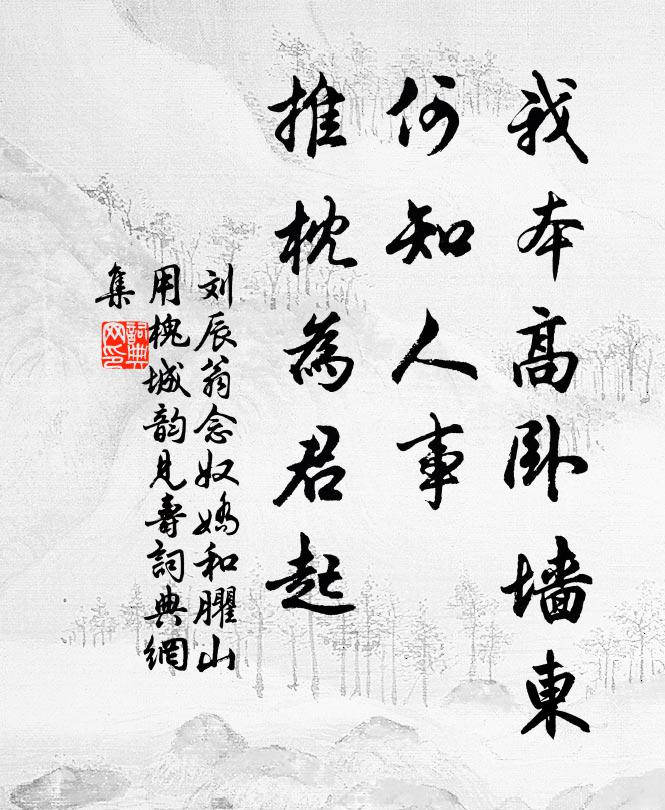 我本高卧墙東
何知人事
推枕為君起
刘辰翁念奴嬌和臞山
用槐城韵見壽詞典網
集
詞典网印